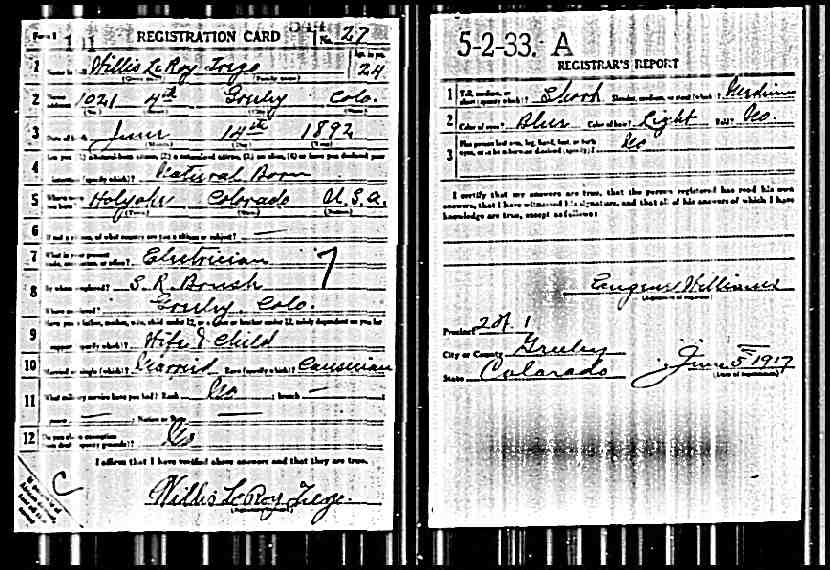 Form 1 REGISTRATION CARD No. 27
1 Willis LeRoy Age in yrs. 24
2 1021 4th Greeley Colo.
3 Date of birth June 14th 1892
4 Are you (1) a natural-born citizen, (2) a naturalized citizen, (3) an alien, (4) or have you declared your
intention (specify which)? Natural Born
5 Where were you born Holyoke Colorado U.S.A.
6 If not a citizen, of what country are you a citizen or subject? —
7 What is your present trade, occupation, or office? Electrician
8 By whom employed? S. R. Brush
Where employed? Greeley, Colo.
9 Have you a father, mother, wife, child under 12, or a sister or brother under 12, solely dependent on you for
support (specify which)? Wife & Child
10 Married or single (which)? Married Race (specify which)? Caucasian
11 What military service have you had? Rank No ; branch —
years — ; Nation or State —
12 Do you claim exemption from draft (specify grounds)? No
I affirm that I have verified above answers and that they are true.
C
Willis LeRoy
5-2-33. A
REGISTRAR'S REPORT
1 Tall, medium, or short (specify which)? Short Slender, medium, or stout (which)? Medium
2 Color of eyes? Blue Color of hair? Light Bald? No.
3 Has person lost arm, leg, hand, foot, or both eyes, or is he otherwise disabled (specify)? No
I certify that my answers are true, that the person registered has read his own
answers, that I have witnessed his signature, and that all of his answers of which I have
knowledge are true, except as follows:
Eugene Williams
(Signature of registrar)
Precinct 2 of 1
City or County Greeley
State Colorado June 5 1917
(Date of registration)